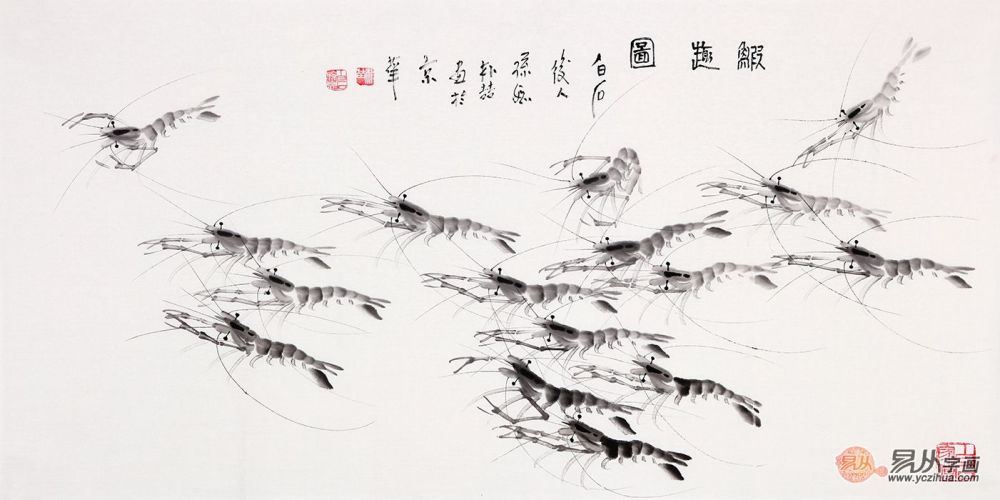 鰕趣圖
白石
後人
畫於
京
華
易从
易从字画
www.yczihua.com